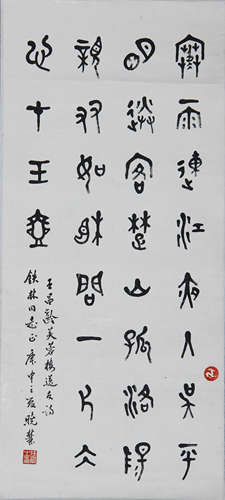 寒雨連江夜入吳平
明送客楚山孤洛陽
親友如相問一片冰
心在玉壺
王昌齡芙蓉樓送友詩
鐵林同志正 庚申之夏